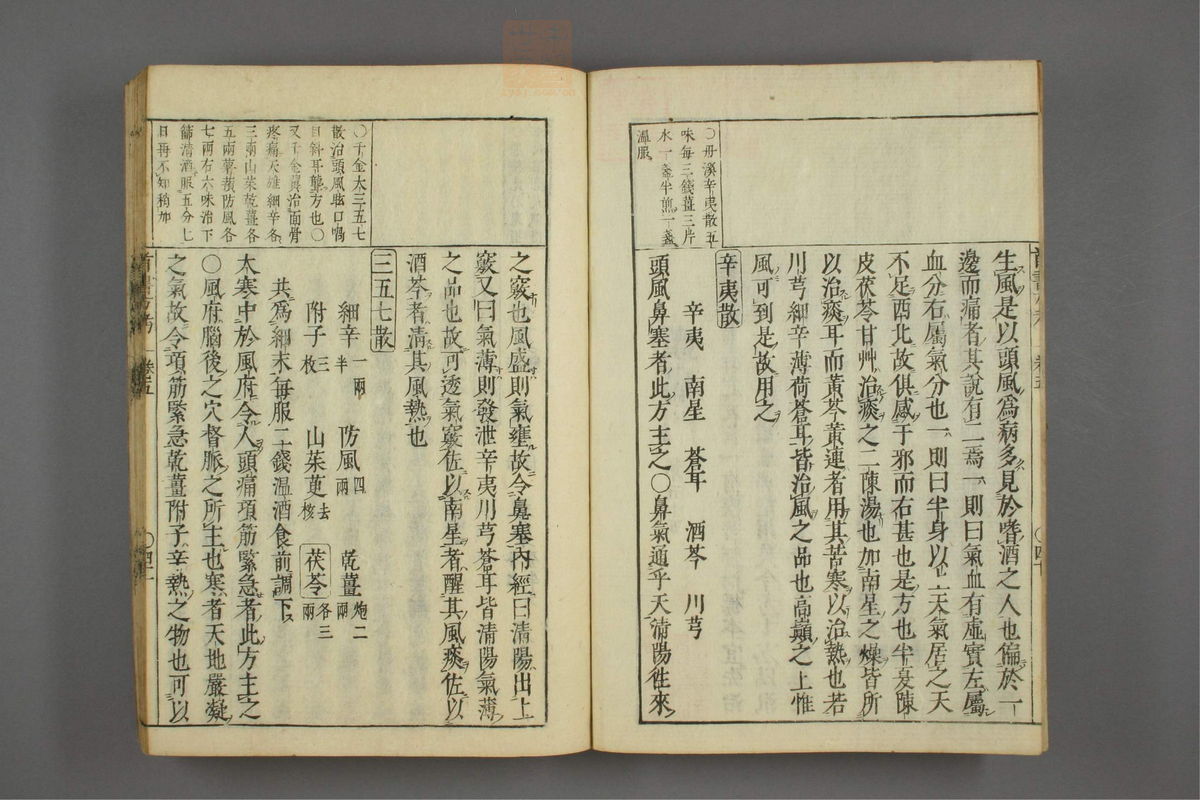 〇丹溪辛夷散五
味每三錢薑三片
水一盞半煎一盞
溫服
生風是以頭風爲病多見於嗜酒之人也偏於一
邊而痛者其說有二焉一則曰氣血有虛實左屬
血分右屬氣分也一則曰半身以上天氣居之天
不足西北故俱感于邪而右甚也是方也半夏陳
皮茯苓甘艸治痰之二陳湯也加南星之燥皆所
以治痰耳而黃芩黃連者用其苦寒以治熱也若
川芎細辛薄荷蒼耳皆治風之品也高巔之上惟
風可到是故用之
辛夷散
辛夷 南星 蒼耳 酒芩 川芎
頭風鼻塞者此方主之〇鼻氣通乎天清陽往來
〇千金大三五七
散治頭風眩口喎
目斜耳聾方也〇
又千金翼治面骨
疼痛天雄細辛各
三兩山茱乾薑各
五兩薯蕷防風各
七兩右六味治下
篩清酒服五分匕
日再不知稍加
之竅也風盛則氣壅故令鼻塞內經曰清陽出上
竅又曰氣薄則發泄辛夷川芎蒼耳皆清陽氣薄
之品也故可透氣竅佐以南星者醒其風痰佐以
酒芩者清其風熱也
三五七散
細辛一兩半 防風四兩 乾薑炮二兩
附子三枚 山茱萸去核 茯苓各三兩
共爲細末每服二錢溫酒食前調下
太寒中於風府令人頭痛項筋緊急者此方主之
〇風府腦後之穴督脈之所主也寒者天地嚴凝
之氣故令項筋緊急乾薑附子辛熱之物也可以